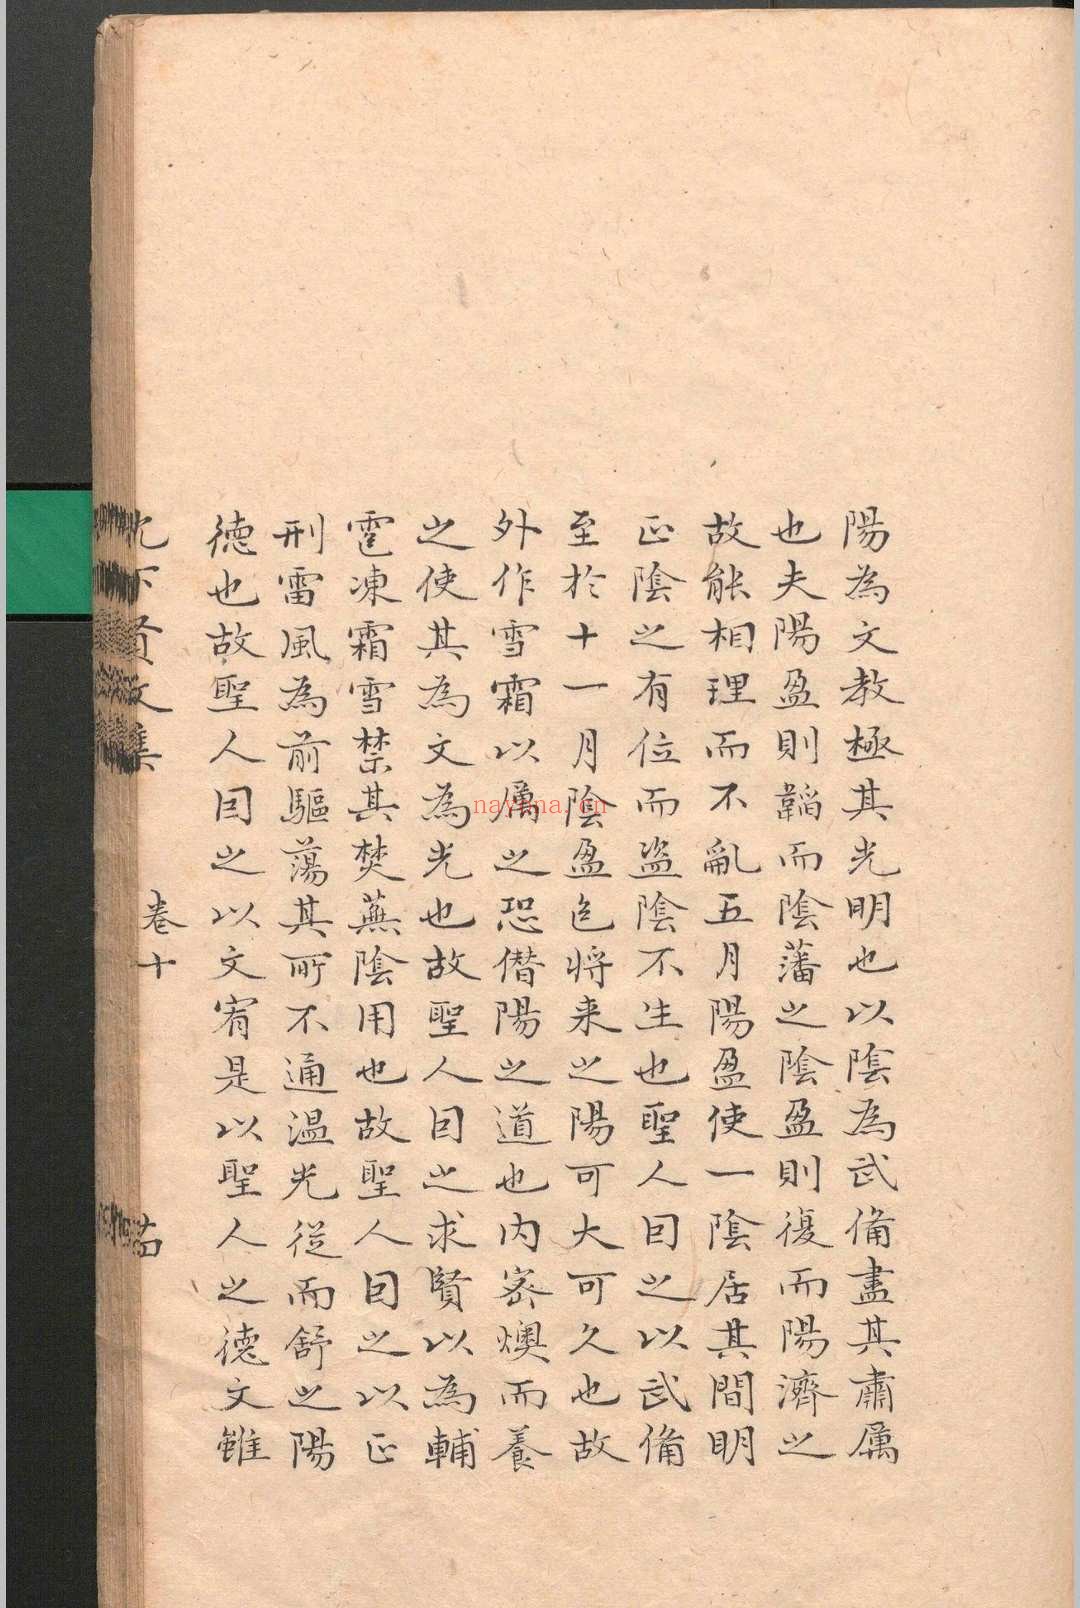 陽為文教極其光明也以陰為武俻盡其肅厲
也夫陽盈則韜而陰藩之陰盈則復而陽濟之
故能相理而不亂五月陽盈使一陰居其間明
正陰之有位而盗陰不生也聖人因之以武俻
至於十一月陰盈色将来之陽可大可久也故
外作雪霜以厲之恐僭陽之道也内宻燠而養
之使其為文為光也故聖人因之求賢以為輔
雹凍霜雪禁其焚蕪陰用也故聖人因之以正
刑雷風為前驅蕩其所不通温光従而舒之陽
徳也故聖人因之以文宥是以聖人之徳文雖
沈下賢文集
卷十
nayona.cn